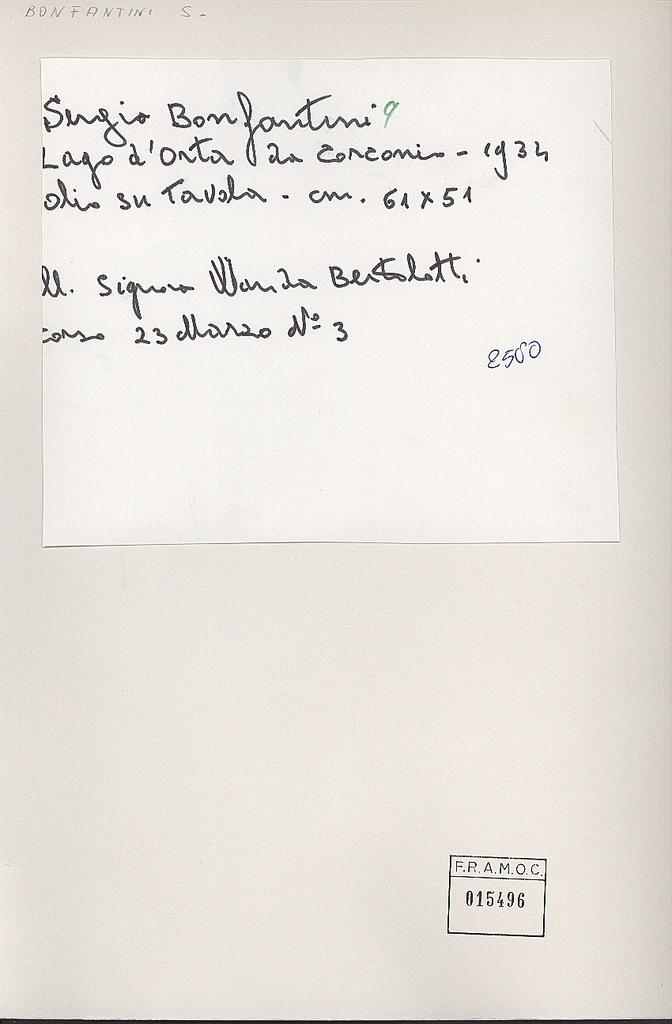 BONFANTINI S-
Sergio Bonfantini 9
Lago d'Orta da Corconio - 1934
olio su Tavola - cm. 61 x 51
ll. Signora Wanda Bertolotti
corso 23 Marzo Nº 3
2500
F.R.A.M.O.C.
015496